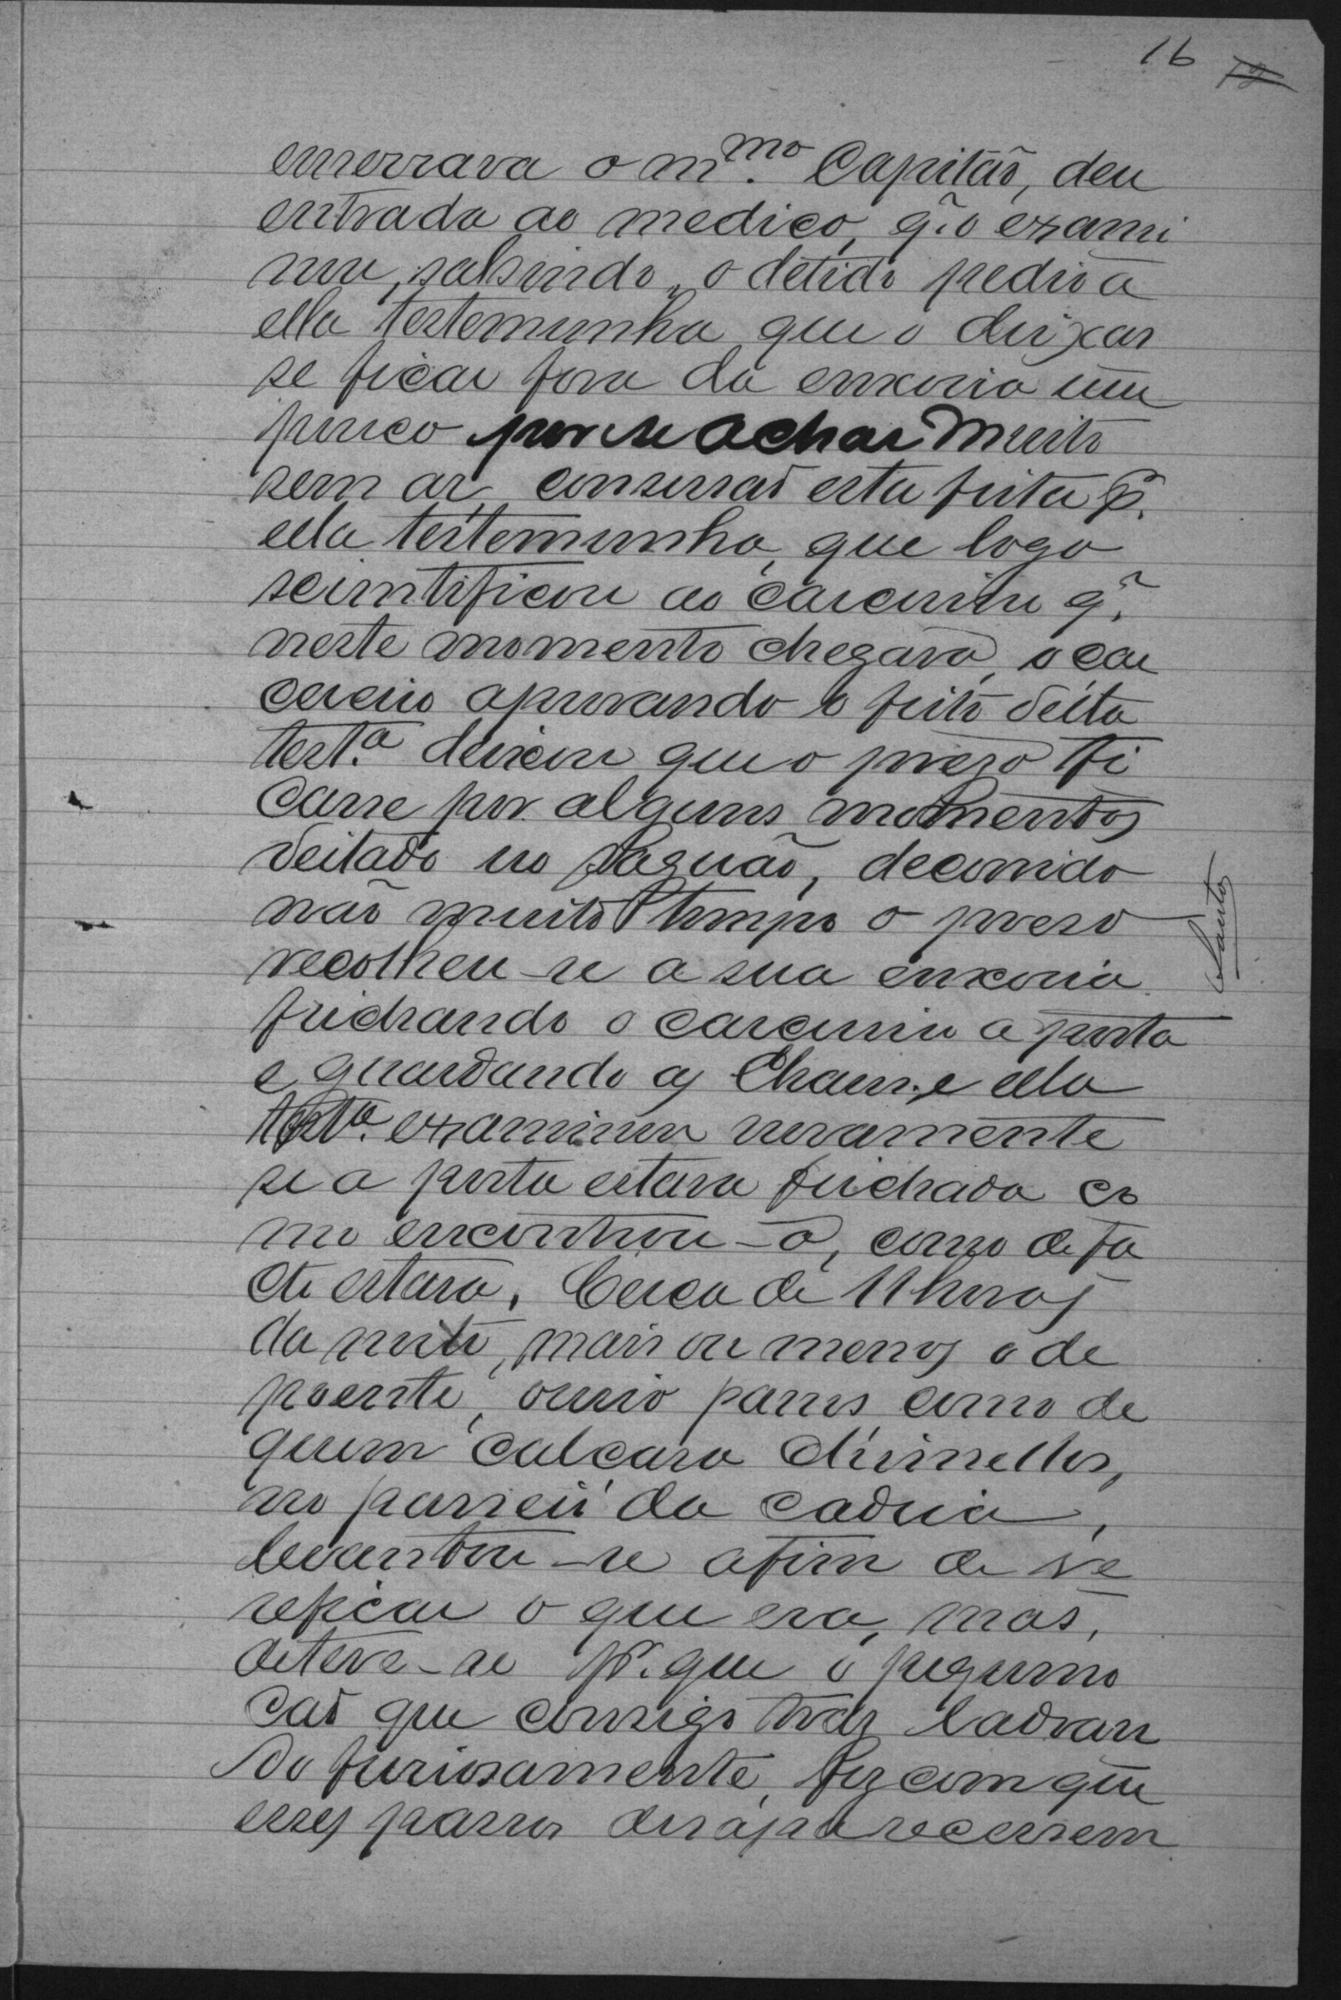 16 12
encerrava o m.mo Capitão, deu
entrada ao medico, q̃. o exami
nou, sahindo, o detido pedio a
ella testemunha que o deixas
se ficar fora da enxovia um
pouco por se achar muito
sem ar, concessão esta feita p.
ella testemunha, que logo
scientificou ao carcereiro q̃.
neste momento chegava, o car
cereiro aprovando o feito desta
test.a deixou que o preso fi
casse por alguns momentos
deitado no saguão, decorrido
não muito tempo o preso
recolheu-se a sua enxovia
feichando o carcereiro a porta
e guardando as chaves e ella
test.a examinou novamente
se a porta estava feichada co
mo encontrou-a, como de fa
cto estava. Cerca de 11 horas
da noite, mais ou menos o de
poente, ouvio passos como de
quem calcava chinellos,
no passeii da cadeia,
levantou-se afim de ve
reficar o que era, mas,
deteve-se pr. que o pequeno
cão que comsigo traz ladran
do furiosamente, fez com que
esses passos desaparecessem
Santos